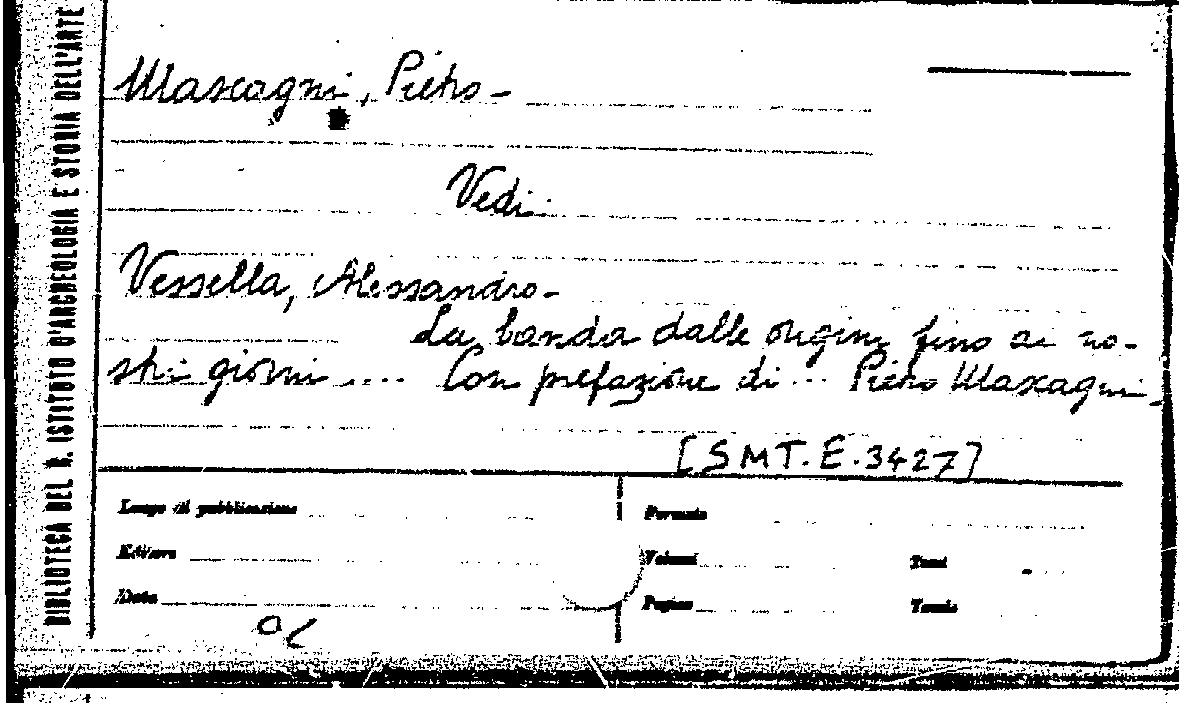 BIBLIOTECA DEL R. ISTITUTO D'ARCHEOLOGIA E STORIA DELL'ARTE
Mascagni, Pietro -
Vedi
Vessella, Alessandro -
La banda dalle origini fino ai no-
stri giorni .... Con prefazione di ... Pietro Mascagni -
[SMT.E.3427]
Luogo di pubblicazione
Formato
Editore
Volumi
Tomi
Data
Pagine
Tavole